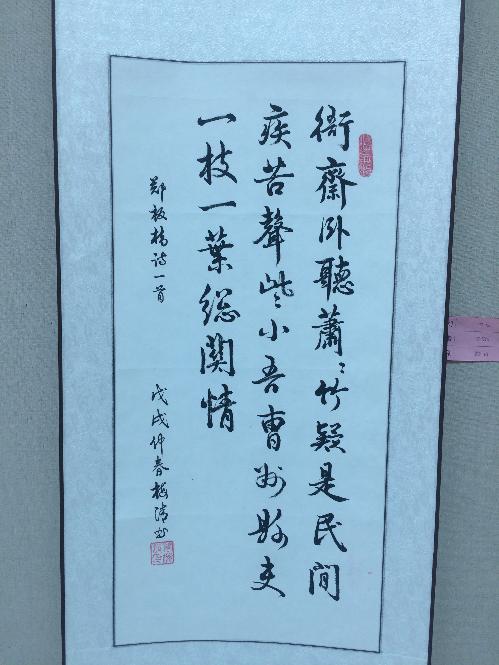 衙齋卧聽蕭〻竹疑是民間
疾苦聲些小吾曹州縣吏
一枝一葉總關情
郑板橋诗一首
戊戌仲春梅清书